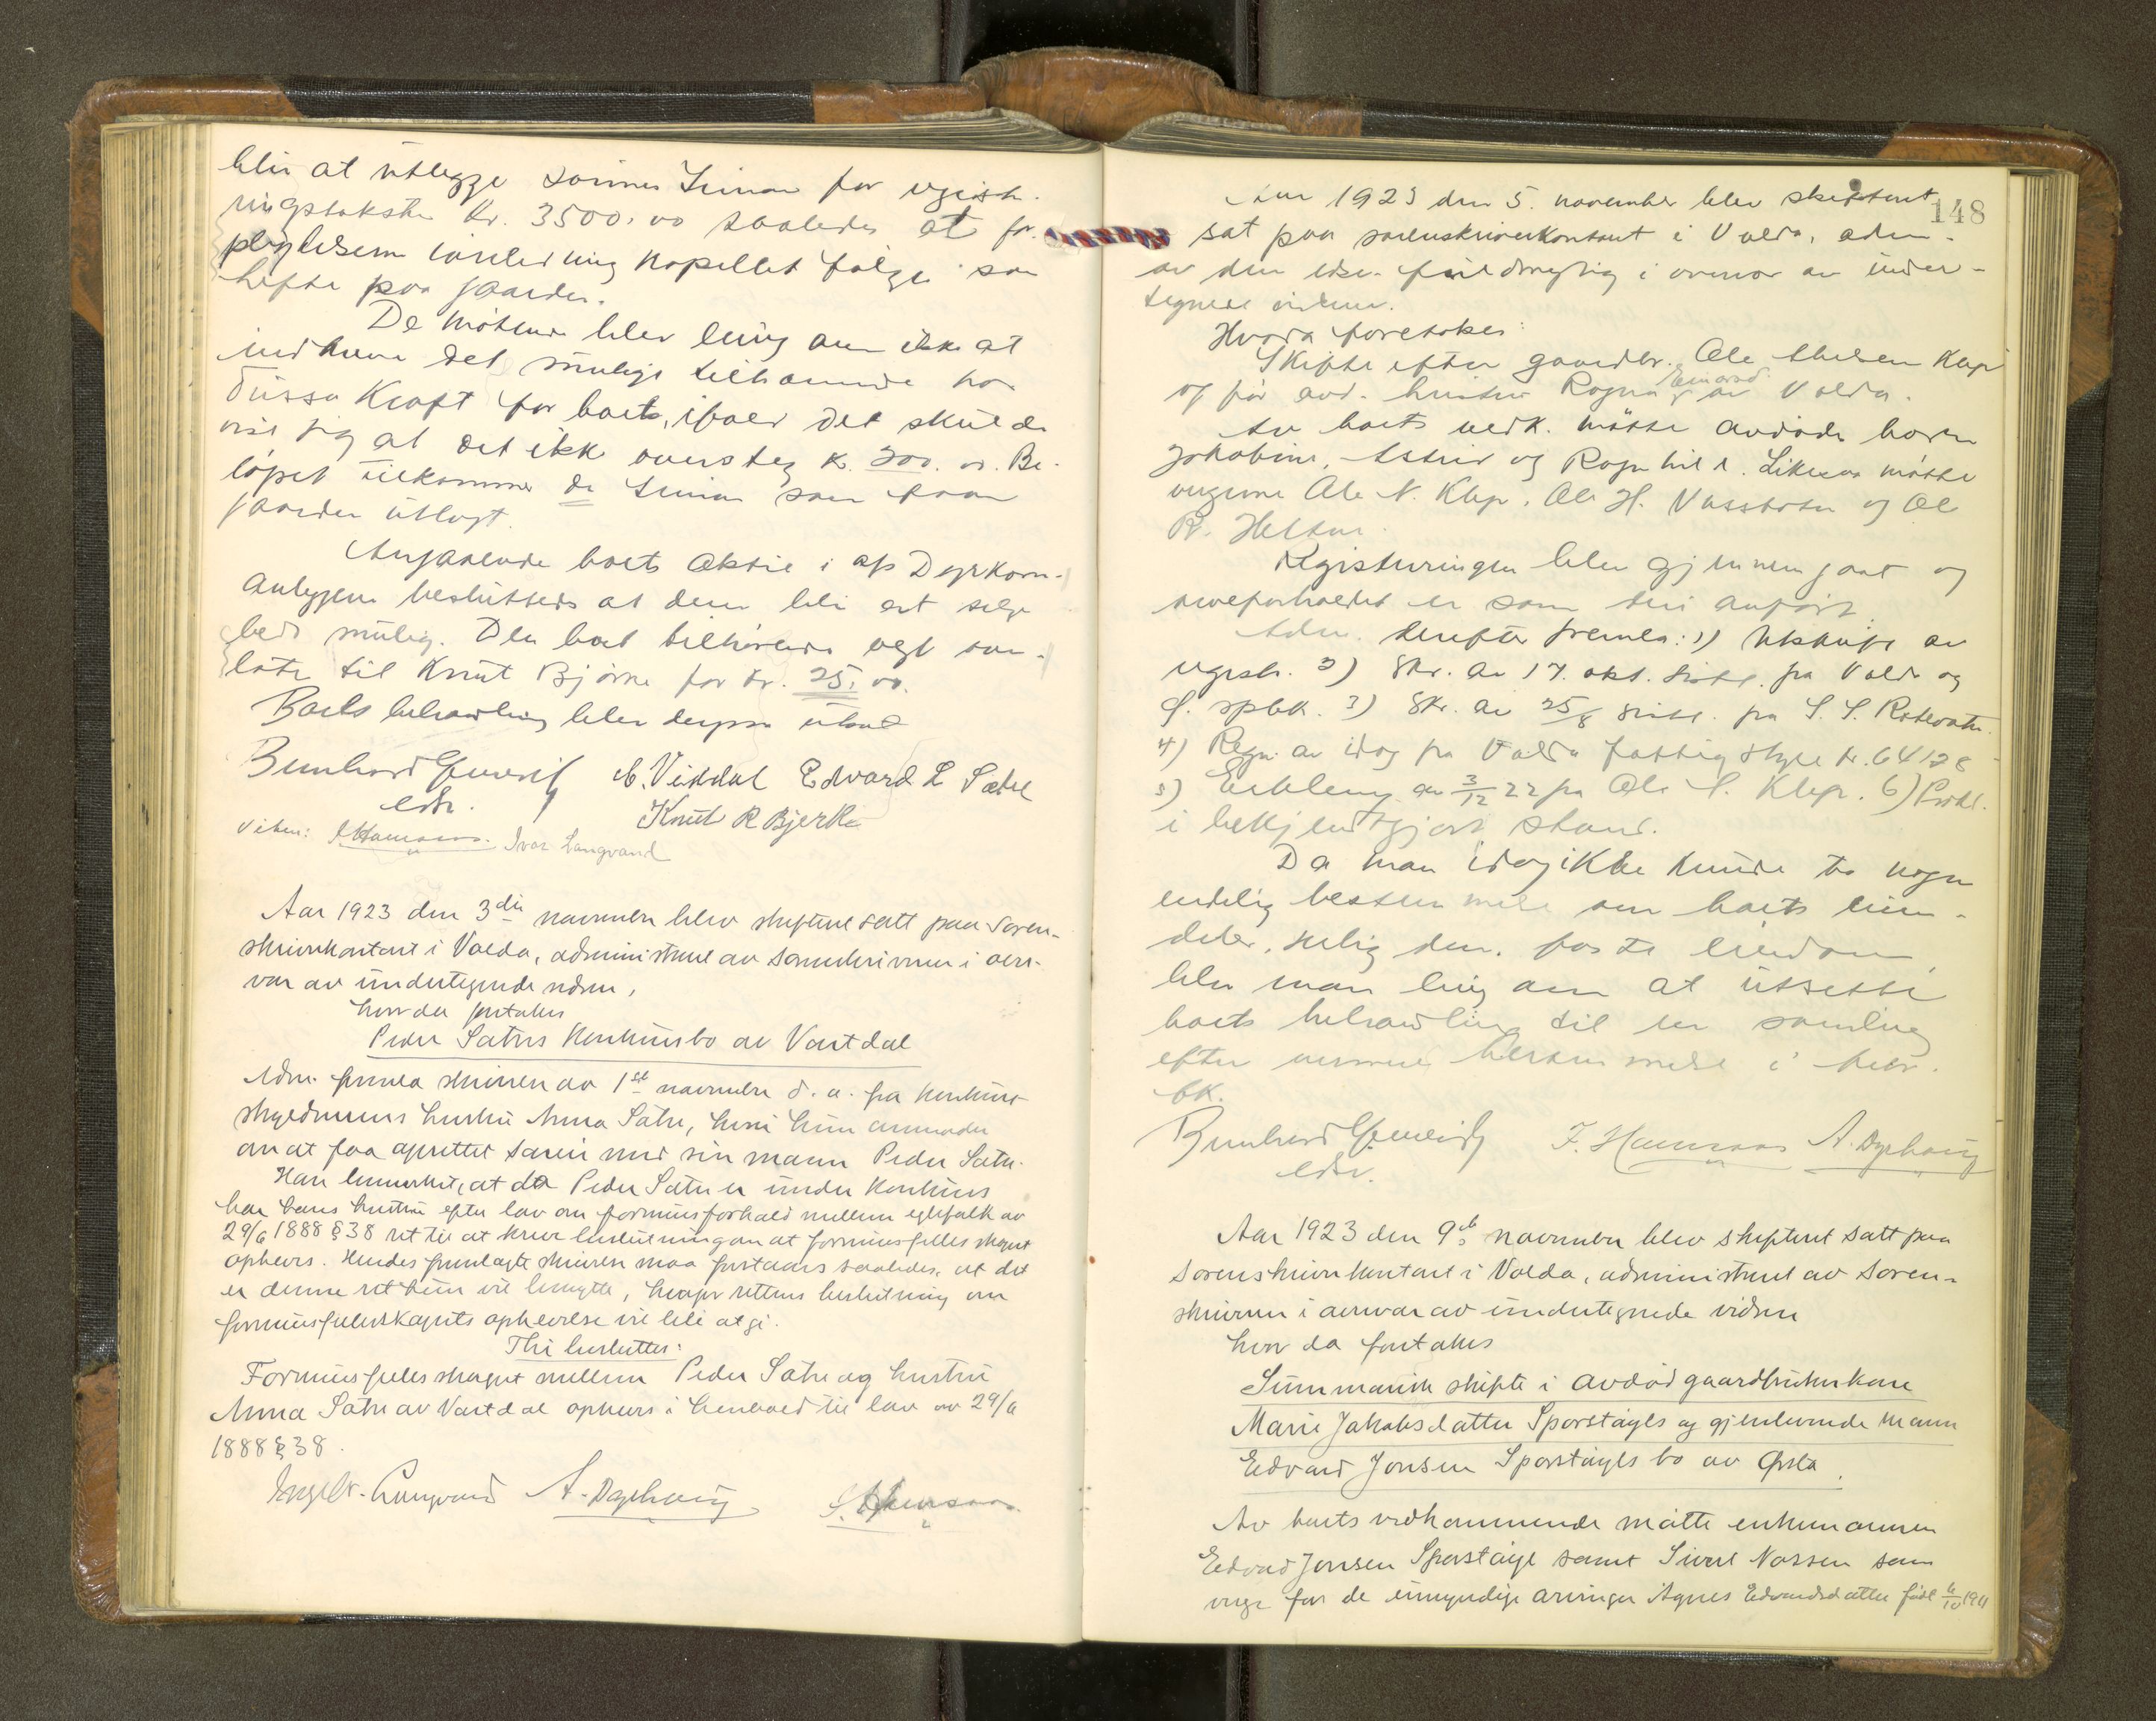 blir at utlegge sønnen Simon for registre-
ringstaksten kr. 3500,00 saaledes at for-
pligtelsene likeledning kapellet følge som
hefte paa gaarden.
De møtende blev enig om ikke at
indkreve det mulige tilkommende hos
Tussa Kraft for boet, ifald det skulde
vise sig at det ikke oversteg kr. 300.00. Be-
løpet tilkommer da Simon som faar
gaarden utlagt.
Angaaende boets aktie i a/s Dyrkorn-
anleggene besluttedes at den blir at selge
bedst mulig. Den boet tilhørende vegt over-
lates til Knut Bjørne for kr. 25,00.
Boets behandling blev derpaa utsat
Bernhard E. Vikdal Edvard L Sætre
edsv. Knut R Bjerke
Viten: J. Hamsaas. Ivar Langvand
Aar 1923 den 3die november blev skifteret satt paa soren-
skriverkontoret i Volda, administrert av sorenskriveren i over-
vær av undertegnede vidner,
hvor da foretakes
Peder Sætres konkursbo av Vartdal
Adm. fremla skrivelse av 1ste november d. a. fra konkurs-
skyldnerens hustru Anna Sætre, hvori hun anmoder
om at faa oprettet særeie med sin mann Peder Sætre.
Han bemerket, at da Peder Sætre er under konkurs
har hans hustru efter lov om formuesforhold mellem egtefolk av
29/6 1888 § 38 ret til at kreve beslutning om at formuesfellesskapet
opheves. Hendes fremlagte skrivelse maa forstaaes saaledes, at det
er denne ret hun vil benytte, hvorfor rettens beslutning om
formuesfellesskapets ophevelse vil bli at gi.
Thi besluttes:
Formuesfellesskapet mellem Peder Sætre og hustru
Anna Sætre av Vartdal opheves i henhold til lov av 29/6
1888 § 38.
Ingebr. Langvand A. Dyrhaug J. Hamsaas
148
Aar 1923 den 5. november blev skifteret
sat paa sorenskriverkontoret i Volda, adm.
av den edsv. fuldmegtig i overvær av under-
tegnede vidner.
Hvorda foretokes:
Skifte efter gaardbr. Ole Nilsen Klep
og før avd. hustru Ragna Einarsd. av Volda.
Av boets vedk. møtte avdøde barn
Jakobine, Astrid og Ragnhild. Likesaa møtte
vergene Ole N. Klep, Ole H. Vassbotn og Ole
R. Heltne.
Registreringen blev gjennemgaat og
arveforholdet er som deri anført.
Adm. derefter fremla: 1) Utskrift av
registr. 2) Skr. av 17. okt. sidstl. fra Volda og
S. spbk. 3) Skr. av 25/8 sidstl. fra S. S. Rotevatn.
4) Regn. av idag fra Volda fattigstyre kr. 64128
5) Erklering av 3/12 22 fra Ole S. Klep. 6) Prokl.
i bekjendtgjort stand.
Da man idag ikke kunde ta nogen
endelig bestemmelse om boets eien-
deler, særlig den faste eiendom,
blev man enig om at utsette
boets behandling til en samling
efter nærmere bestemmelse i bevr.
bk.
Bernhard J. Hamsaas A. Dyrhaug
edsv.
Aar 1923 den 9de november blev skifteret satt paa
sorenskriverkontoret i Volda, administrert av soren-
skriveren i overvær av undertegnede vidner
hvor da foretakes
Summarisk skifte i avdød gaardbrukerkone
Marie Jakobsdatter Sporstøyls og gjenlevende mann
Edvard Jonsen Sporstøyls bo av Ørsta.
Av boets vedkommende møtte enkemannen
Edvard Jonsen Sporstøyl samt Sivert Nossen som
verge for de umyndige arvinger Agnes Edvardsdatter født 6/10 1911